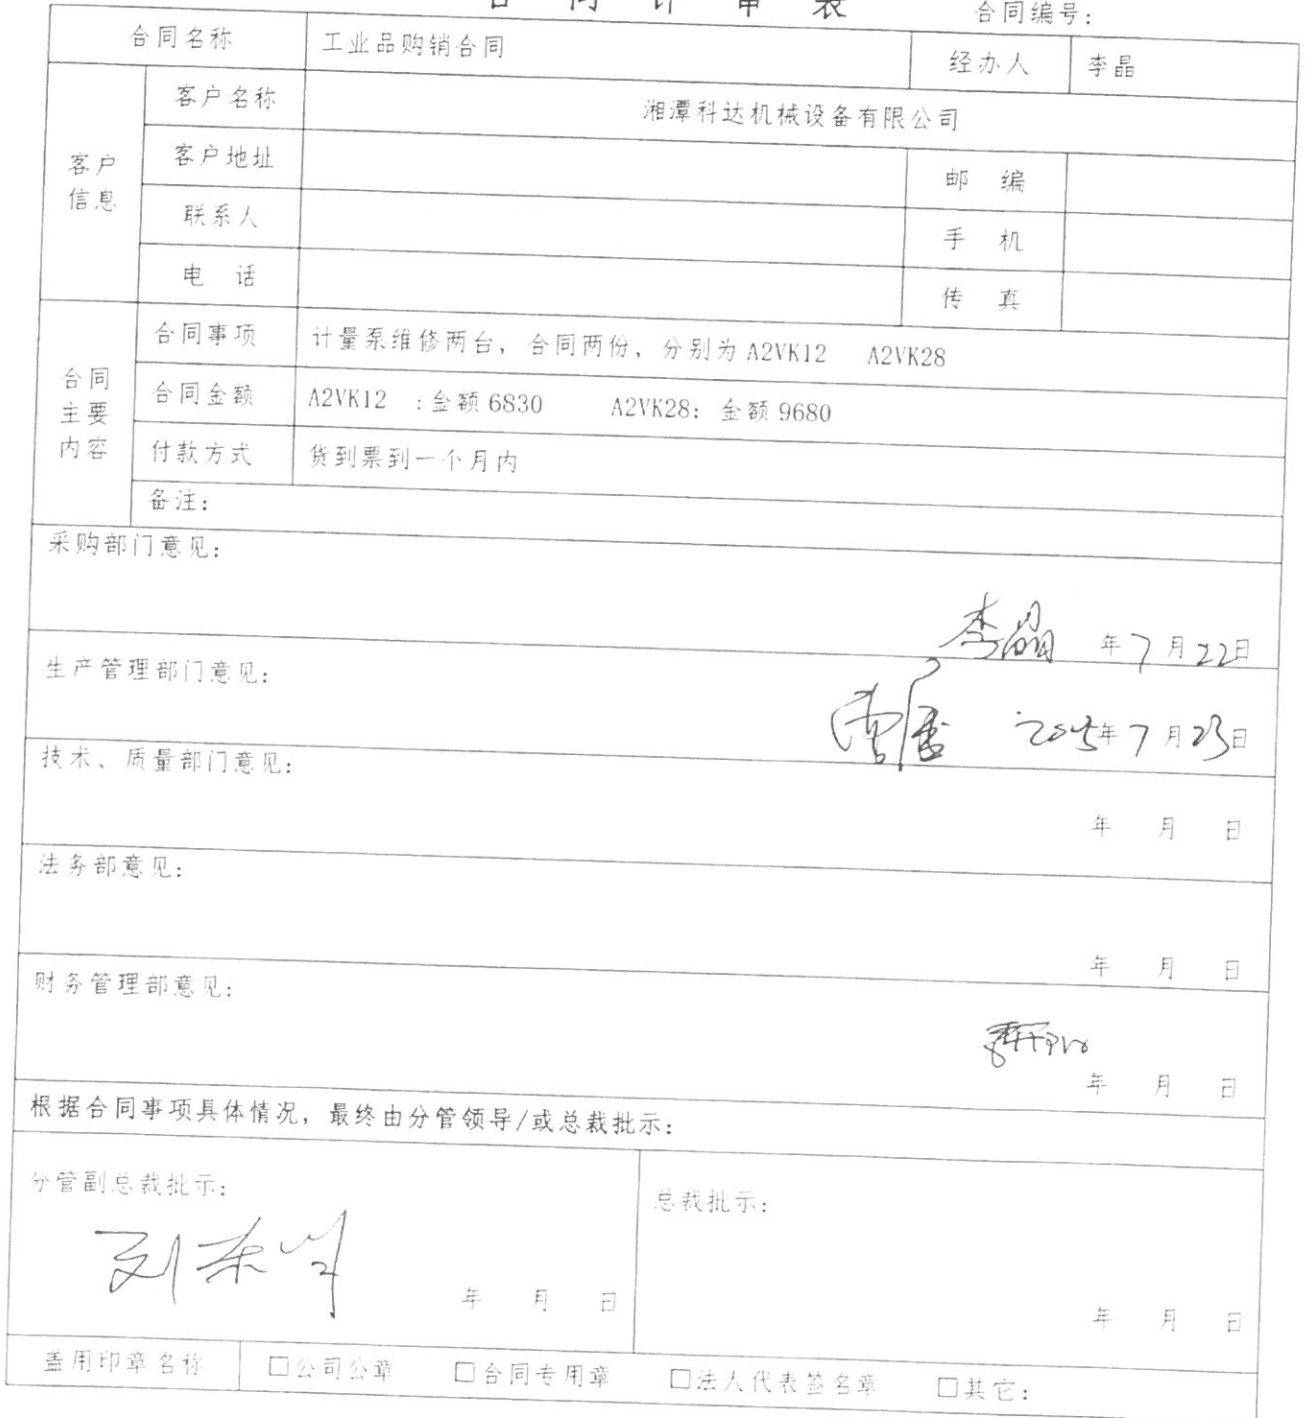 合 同 评 审 表 合同编号：
合同名称 工业品购销合同 经办人 李晶
客户信息
客户名称 湘潭科达机械设备有限公司
客户地址 邮 编
联系人 手 机
电 话 传 真
合同主要内容
合同事项 计量泵维修两台，合同两份，分别为 A2VK12 A2VK28
合同金额 A2VK12 ：金额 6830 A2VK28：金额 9680
付款方式 货到票到一个月内
备注：
采购部门意见：
李晶 年 7 月 22 日
生产管理部门意见：
年 7 月 23 日
技术、质量部门意见：
年 月 日
法务部意见：
年 月 日
财务管理部意见：
年 月 日
根据合同事项具体情况，最终由分管领导/或总裁批示：
分管副总裁批示：
年 月 日
总裁批示：
年 月 日
盖用印章名称 □公司公章 □合同专用章 □法人代表签名章 □其它：